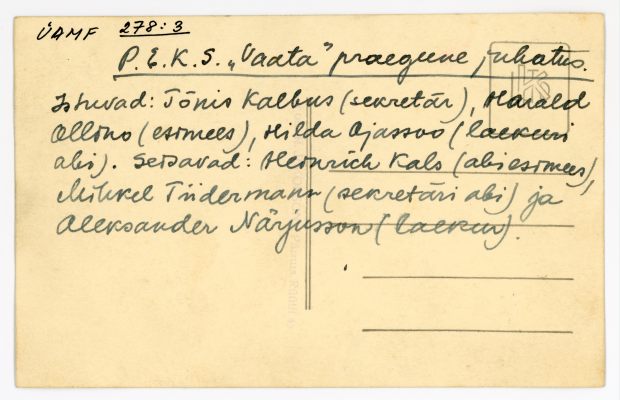 ÜAMF 278:3
P.E.K.S. „Vaata" praegune juhatus.
Istuvad: Tõnis Kalbus (sekretär), Harald
Ollino (esimees), Hilda Ojassoo (laekuri
abi). Seisavad: Heinrich Kals (abiesimees),
Mihkel Tiidermann (sekretäri abi) ja
Aleksander Närjusson (laekur).